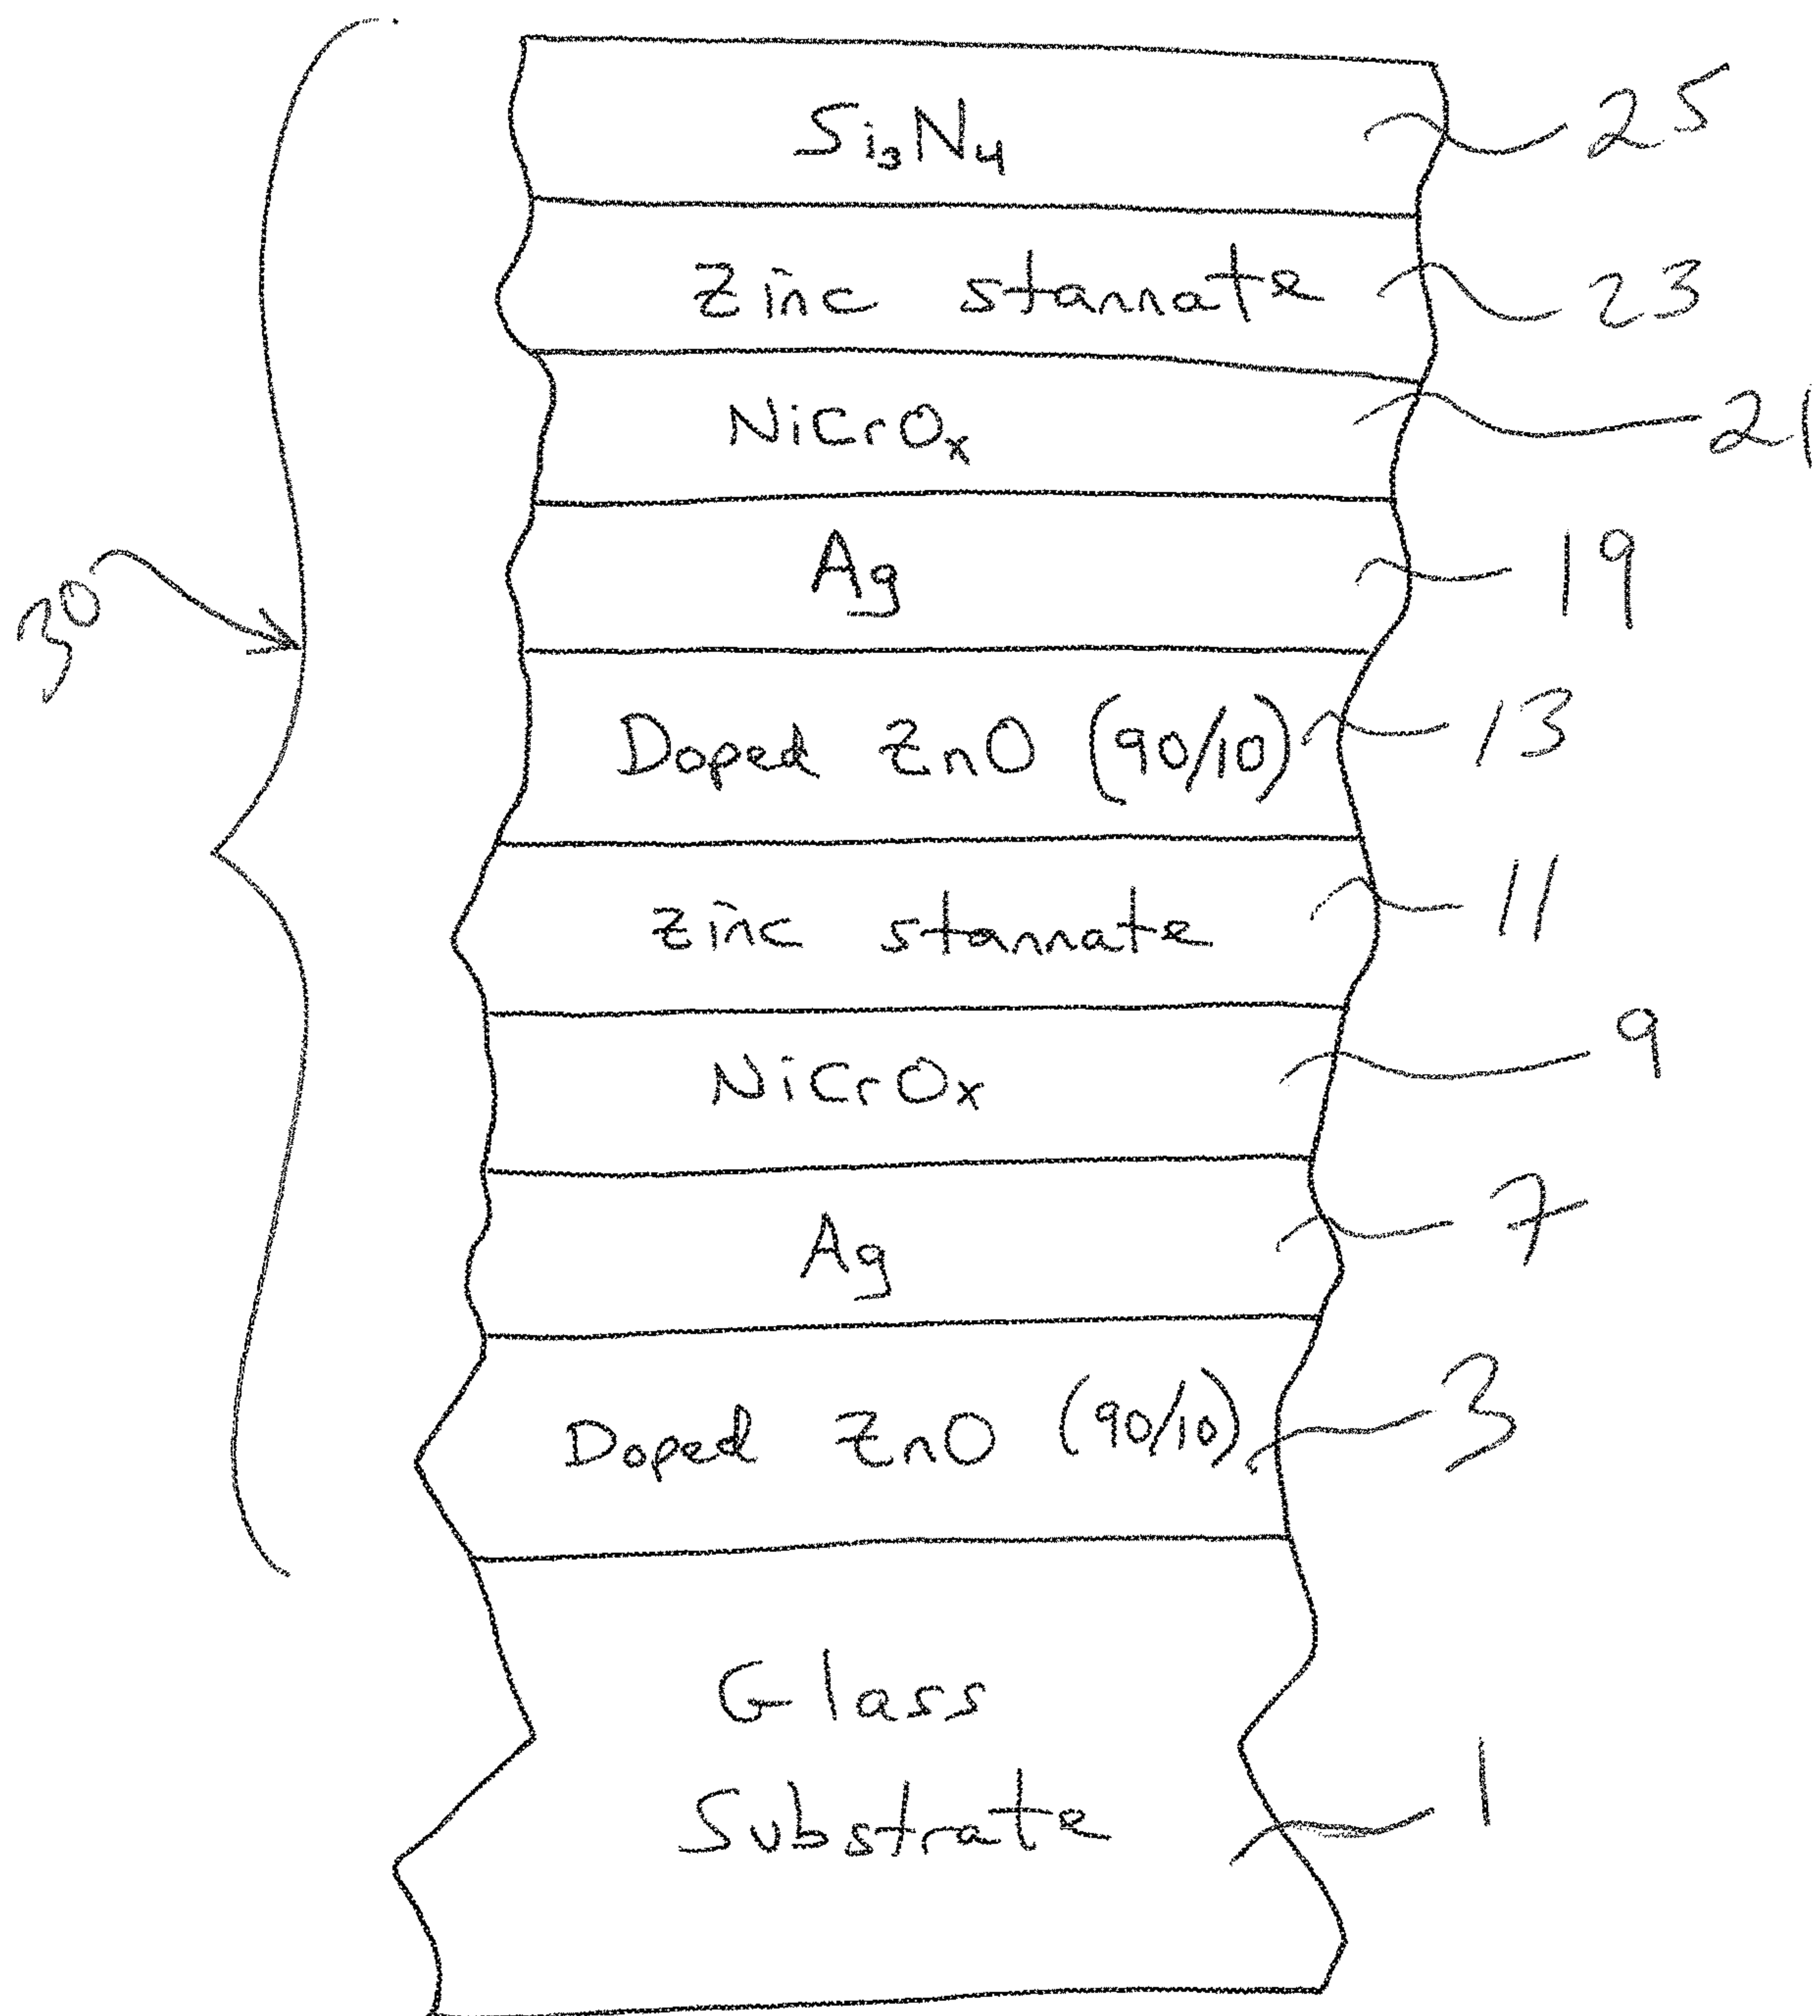 Si₃N₄ 25
Zinc stannate 23
NiCrOₓ 21
Ag 19
30
Doped ZnO (90/10) 13
zinc stannate 11
NiCrOx 9
Ag 7
Doped ZnO (90/10) 3
Glass
Substrate 1